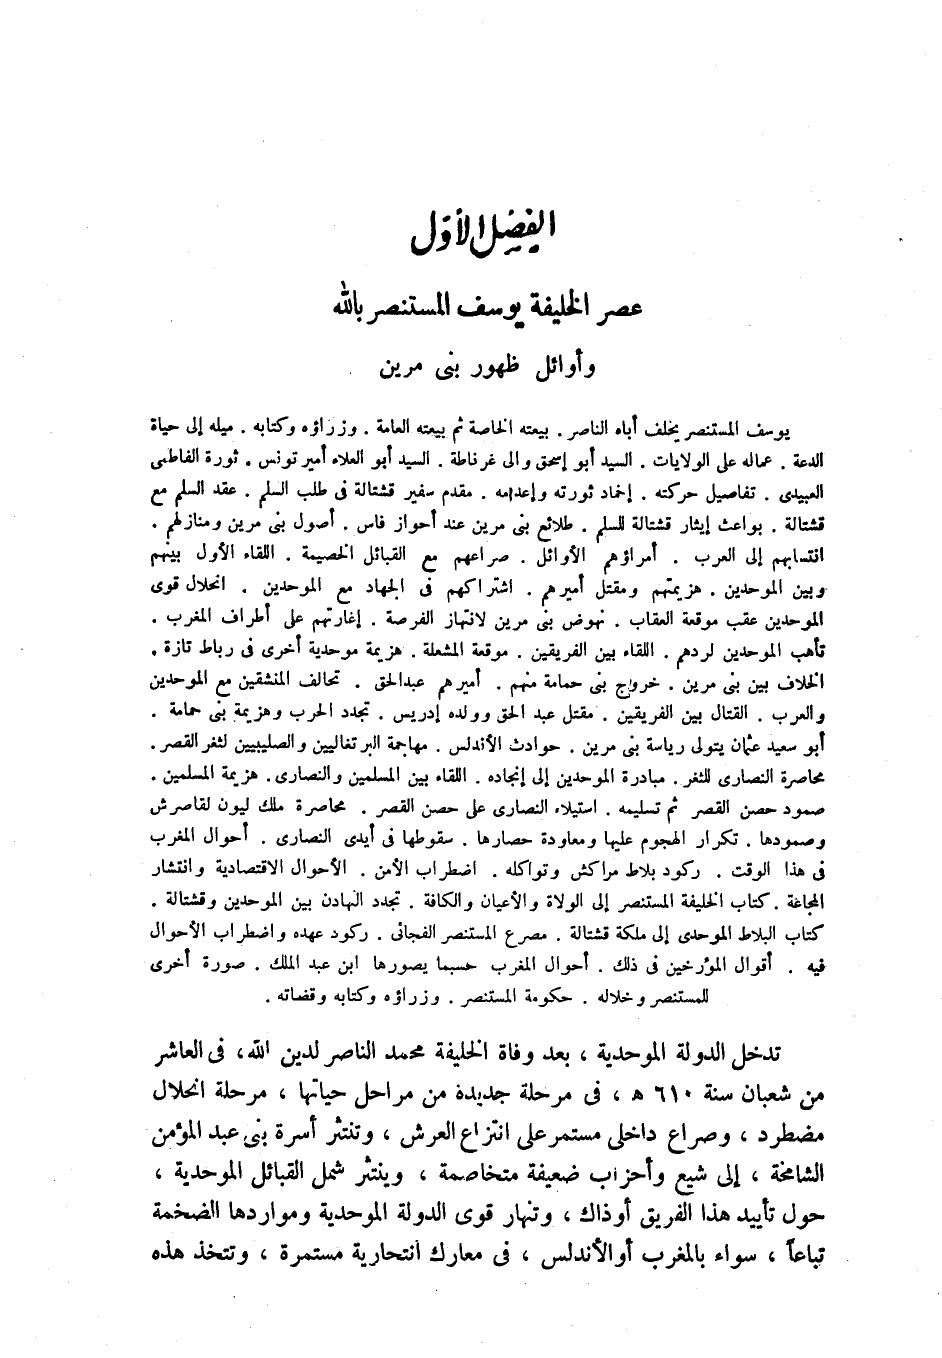 الفصل الأول
عصر الخليفة يوسف المستنصر بالله
وأوائل ظهور بنى مرين
يوسف المستنصر يخلف أباه الناصر . بيعته الخاصة ثم بيعته العامة . وزراؤه وكتابه . ميله إلى حياة
الدعة . عماله على الولايات . السيد أبو إسحق والى غرناطة . السيد أبو العلاء أمير تونس . ثورة الفاطمى
العبيدى . تفاصيل حركته . إخماد ثورته وإعدامه . مقدم سفير قشتالة فى طلب السلم . عقد السلم مع
قشتالة . بواعث إيثار قشتالة للسلم . طلائع بنى مرين عند أحواز فاس . أصول بنى مرين ومنازلهم .
انتسابهم إلى العرب . أمراؤهم الأوائل . صراعهم مع القبائل الخصيمة . اللقاء الأول بينهم
وبين الموحدين . هزيمتهم ومقتل أميرهم . اشتراكهم فى الجهاد مع الموحدين . انحلال قوى
الموحدين عقب موقعة العقاب . نهوض بنى مرين لانتهاز الفرصة . إغارتهم على أطراف المغرب .
تأهب الموحدين لردهم . اللقاء بين الفريقين . موقعة المشعلة . هزيمة موحدية أخرى فى رباط تازة .
الخلاف بين بنى مرين . خروج بنى حمامة منهم . أميرهم عبدالحق . تحالف المنشقين مع الموحدين
والعرب . القتال بين الفريقين . مقتل عبد الحق وولده إدريس . تجدد الحرب وهزيمة بنى حمامة .
أبو سعيد عثمان يتولى رياسة بنى مرين . حوادث الأندلس . مهاجمة البرتغاليين والصليبيين لثغر القصر .
محاصرة النصارى للثغر . مبادرة الموحدين إلى إنجاده . اللقاء بين المسلمين والنصارى . هزيمة المسلمين .
صمود حصن القصر ثم تسليمه . استيلاء النصارى على حصن القصر . محاصرة ملك ليون لقاصرش
وصمودها . تكرار الهجوم عليها ومعاودة حصارها . سقوطها فى أيدى النصارى . أحوال المغرب
فى هذا الوقت . ركود بلاط مراكش وتواكله . اضطراب الأمن . الأحوال الاقتصادية وانتشار
المجاعة . كتاب الخليفة المستنصر إلى الولاة والأعيان والكافة . تجدد الهادن بين الموحدين وقشتالة .
كتاب البلاط الموحدى إلى ملكة قشتالة . مصرع المستنصر الفجائى . ركود عهده واضطراب الأحوال
فيه . أقوال المؤرخين فى ذلك . أحوال المغرب حسبما يصورها ابن عبد الملك . صورة أخرى
للمستنصر وخلاله . حكومة المستنصر . وزراؤه وكتابه وقضاته .
تدخل الدولة الموحدية ، بعد وفاة الخليفة محمد الناصر لدين الله، فى العاشر
من شعبان سنة ٦١٠ ه ، فى مرحلة جديدة من مراحل حياتها ، مرحلة انحلال
مضطرد ، وصراع داخلى مستمر على انتزاع العرش ، وتنتثر أسرة بنى عبد المؤمن
الشامخة ، إلى شيع وأحزاب ضعيفة متخاصمة ، وينتثر شمل القبائل الموحدية ،
حول تأييد هذا الفريق أوذاك ، وتنهار قوى الدولة الموحدية ومواردها الضخمة
تباعاً ، سواء بالمغرب أو الأندلس ، فى معارك انتحارية مستمرة ، وتتخذ هذه